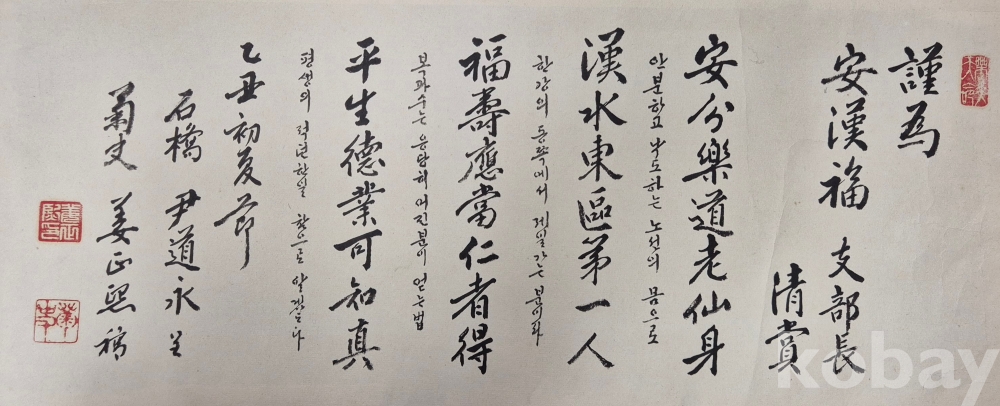 謹爲
安漢福 支部長
清賞
安分樂道老仙身
안분하고 락도하는 노선의 몸으로
漢水東區第一人
한강의 동쪽에서 제일가는 분이라
福壽應當仁者得
복과 수는 응당히 어진분이 얻는법
平生德業可知真
평생의 적년한일 참으로 알겠도다
乙丑初夏節
石橋 尹道永 呈
菊史 姜正熙 稿
kobay